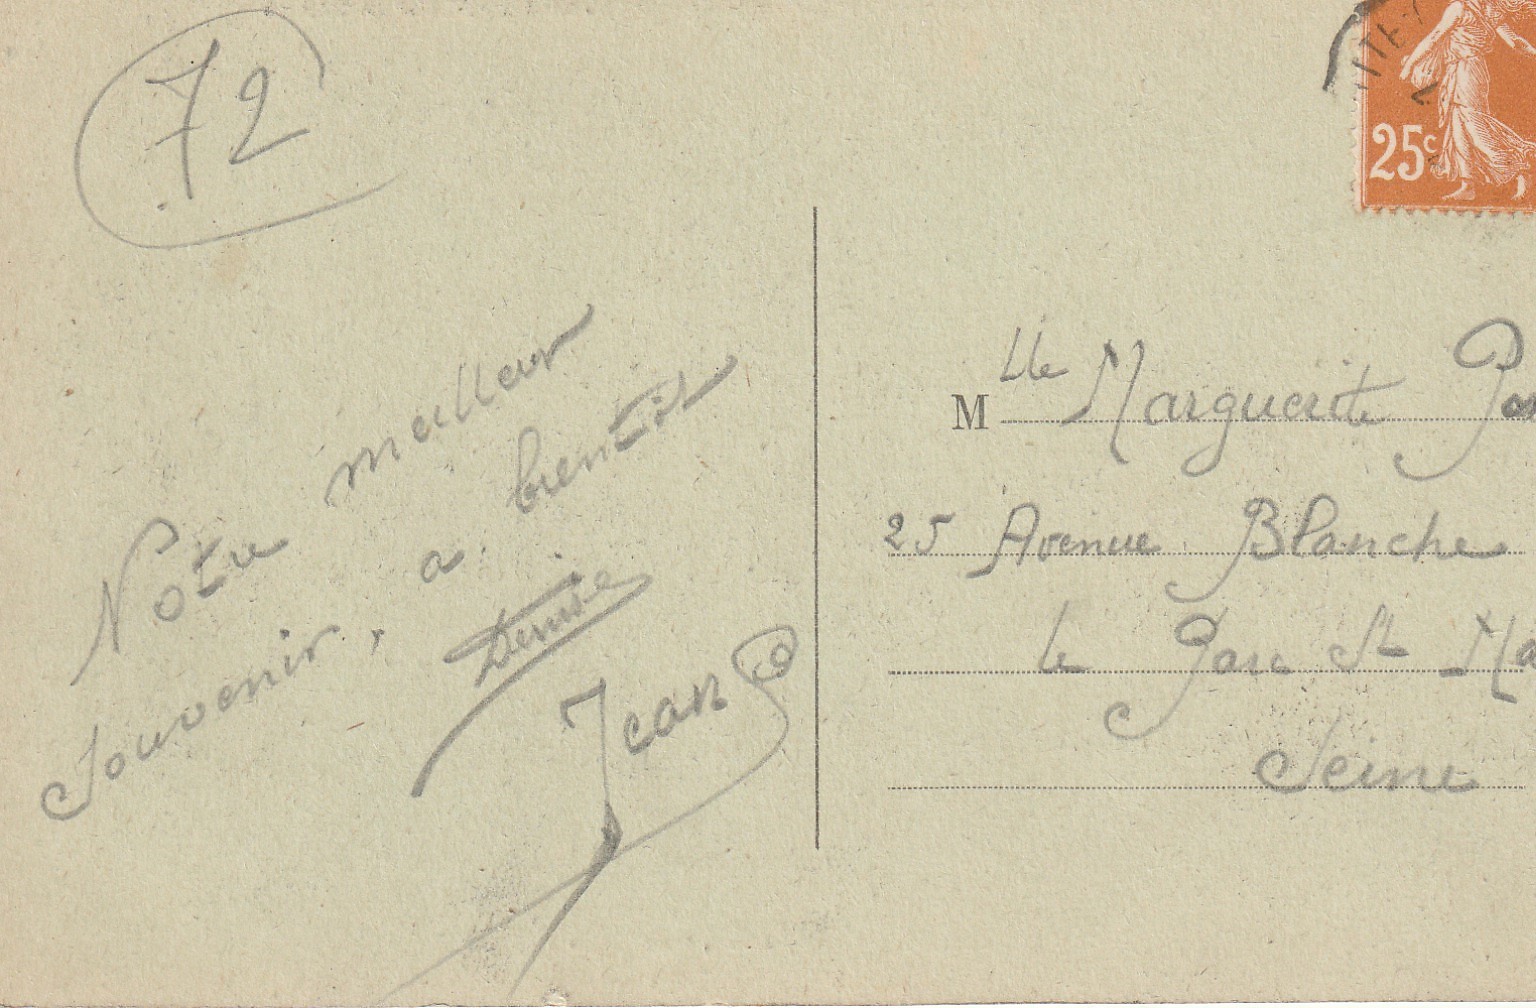 72
Notre meilleur
souvenir, a bientôt
Denise
Jean
25c
Mlle Marguerite
25 Avenue Blanche
le Parc St Ma
Seine